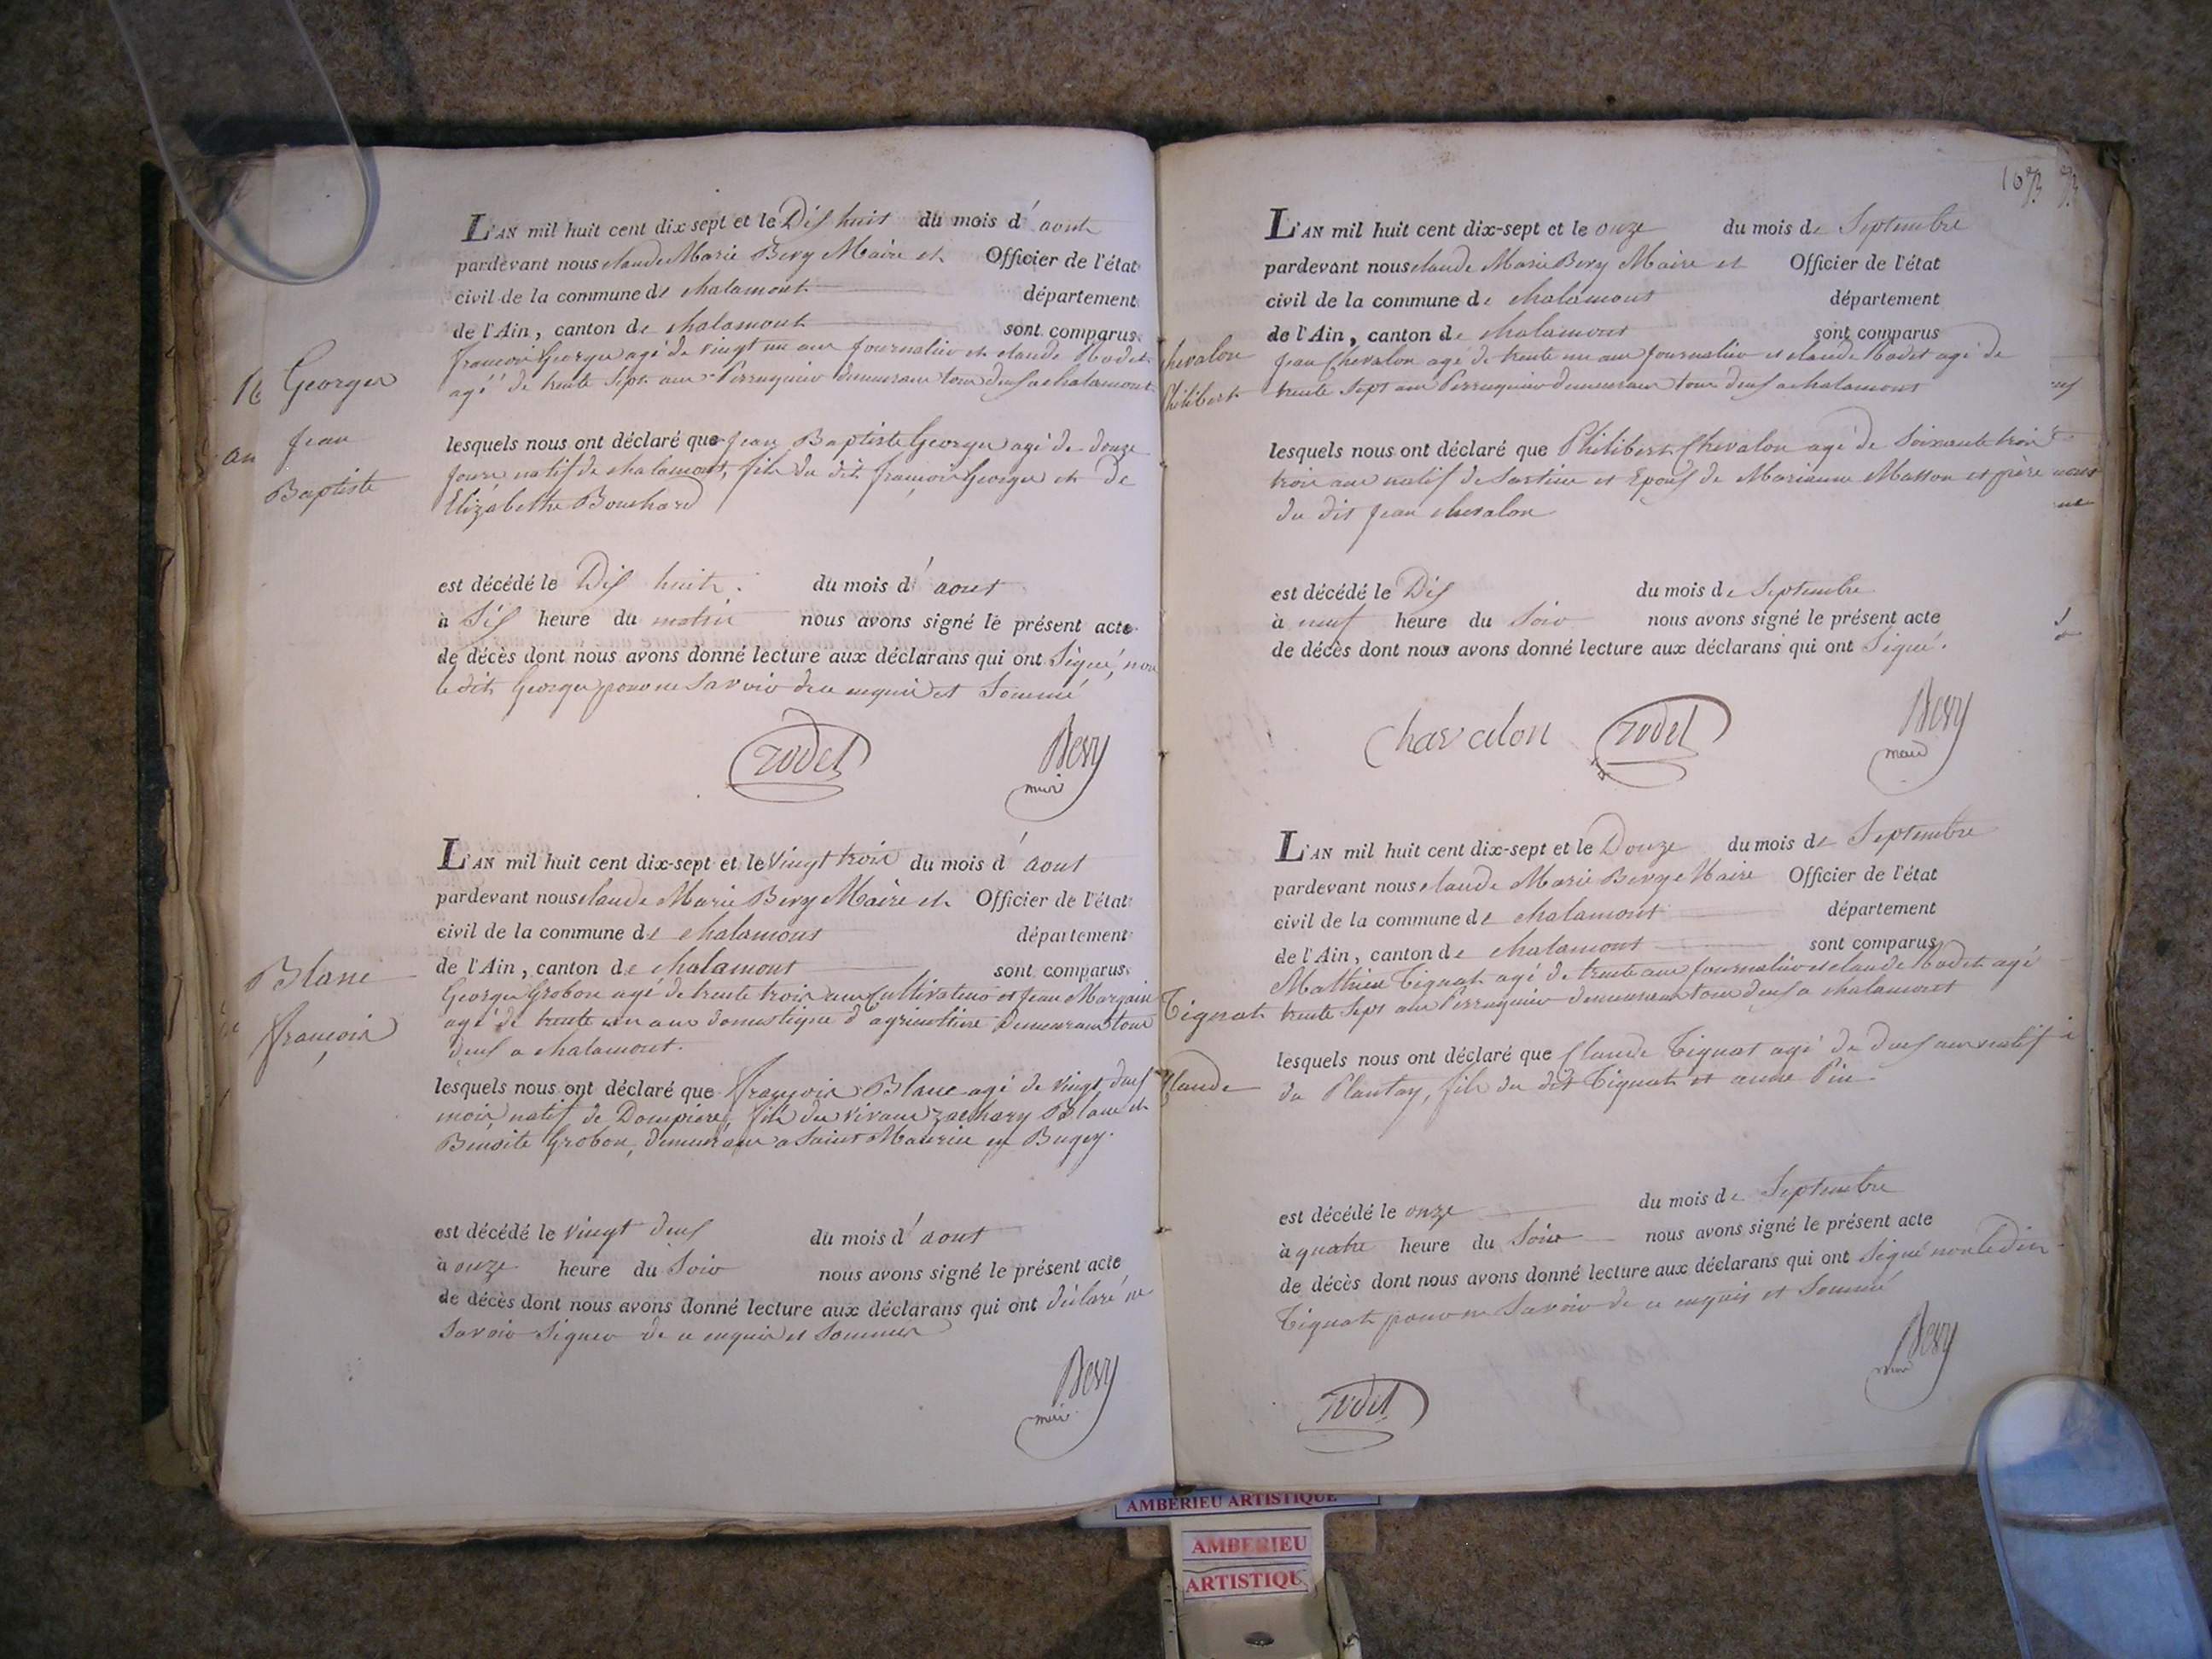 L'AN mil huit cent dix-sept et le Dix huit du mois d'aout
pardevant nous claude Marie Bevy Maire et Officier de l'état
civil de la commune de chalamont département
de l'Ain, canton de chalamont sont comparus
françois Georges agé de vingt un ans journalier et claude Rodet
agé de trente sept ans Perruquier demeurant tous deux a chalamont
Georges
Jean
Baptiste
lesquels nous ont déclaré que jean Baptiste Georges agé de douze
jours natif de chalamont, fils du dit françois Georges et de
Elizabethe Bouchard
est décédé le Dix huit du mois d'aout
à Six heure du matin nous avons signé le présent acte
de décès dont nous avons donné lecture aux déclarans qui ont Signé, non
le dit Georges pour ne Savoir de ce enquis et Sommé
rodet
Bevy
maire
L'AN mil huit cent dix-sept et le Vingt trois du mois d'aout
pardevant nous claude Marie Bevy Maire et Officier de l'état
civil de la commune de chalamont département
de l'Ain, canton de chalamont sont comparus
Blanc
françois
George Grobon agé de trente trois ans Cultivateur et Jean Margain
agé de trente un ans domestique d'agriculture demeurant tous
deux a chalamont.
lesquels nous ont déclaré que françois Blanc agé de vingt deux
mois, natif de Dompierre, fils du vivant zachary Blanc et
Benoite Grobon, demeurant a Saint Maurice en Bugey.
est décédé le vingt deux du mois d'aout
à onze heure du Soir nous avons signé le présent acte
de décès dont nous avons donné lecture aux déclarans qui ont déclaré ne
Savoir Signer de ce enquis et Sommer
Bevy
maire
16
L'AN mil huit cent dix-sept et le onze du mois de Septembre
pardevant nous claude Marie Bevy Maire et Officier de l'état
civil de la commune de chalamont département
de l'Ain, canton de chalamont sont comparus
Chevalon
Philibert
Jean Chevalon agé de trente un ans journalier et claude Rodet agé de
trente Sept ans Perruquier demeurant tous deux a chalamont
lesquels nous ont déclaré que Philibert Chevalon agé de Soixante trois
trois ans natif de et Epoux de Marianne Masson et père
du dit Jean chevalon
est décédé le Dix du mois de Septembre
à neuf heure du Soir nous avons signé le présent acte
de décès dont nous avons donné lecture aux déclarans qui ont Signé.
Chavalon
rodet
Bevy
maire
L'AN mil huit cent dix-sept et le Douze du mois de Septembre
pardevant nous claude Marie Bevy Maire Officier de l'état
civil de la commune de chalamont département
de l'Ain, canton de chalamont sont comparus
Mathieu Tignat agé de trente ans journalier et claude Rodet agé
Tignat
trente Sept ans Perruquier demeurant tous deux a chalamont
Claude
lesquels nous ont déclaré que Claude Tignat agé de deux ans natif
du Plantay, fils du dit Tignat et anne Pin
est décédé le onze du mois de Septembre
à quatre heure du Soir nous avons signé le présent acte
de décès dont nous avons donné lecture aux déclarans qui ont Signé non le dit
Tignat pour ne Savoir de ce enquis et Sommé
Bevy
maire
rodet
AMBERIEU ARTISTIQUE
AMBERIEU
ARTISTIQU